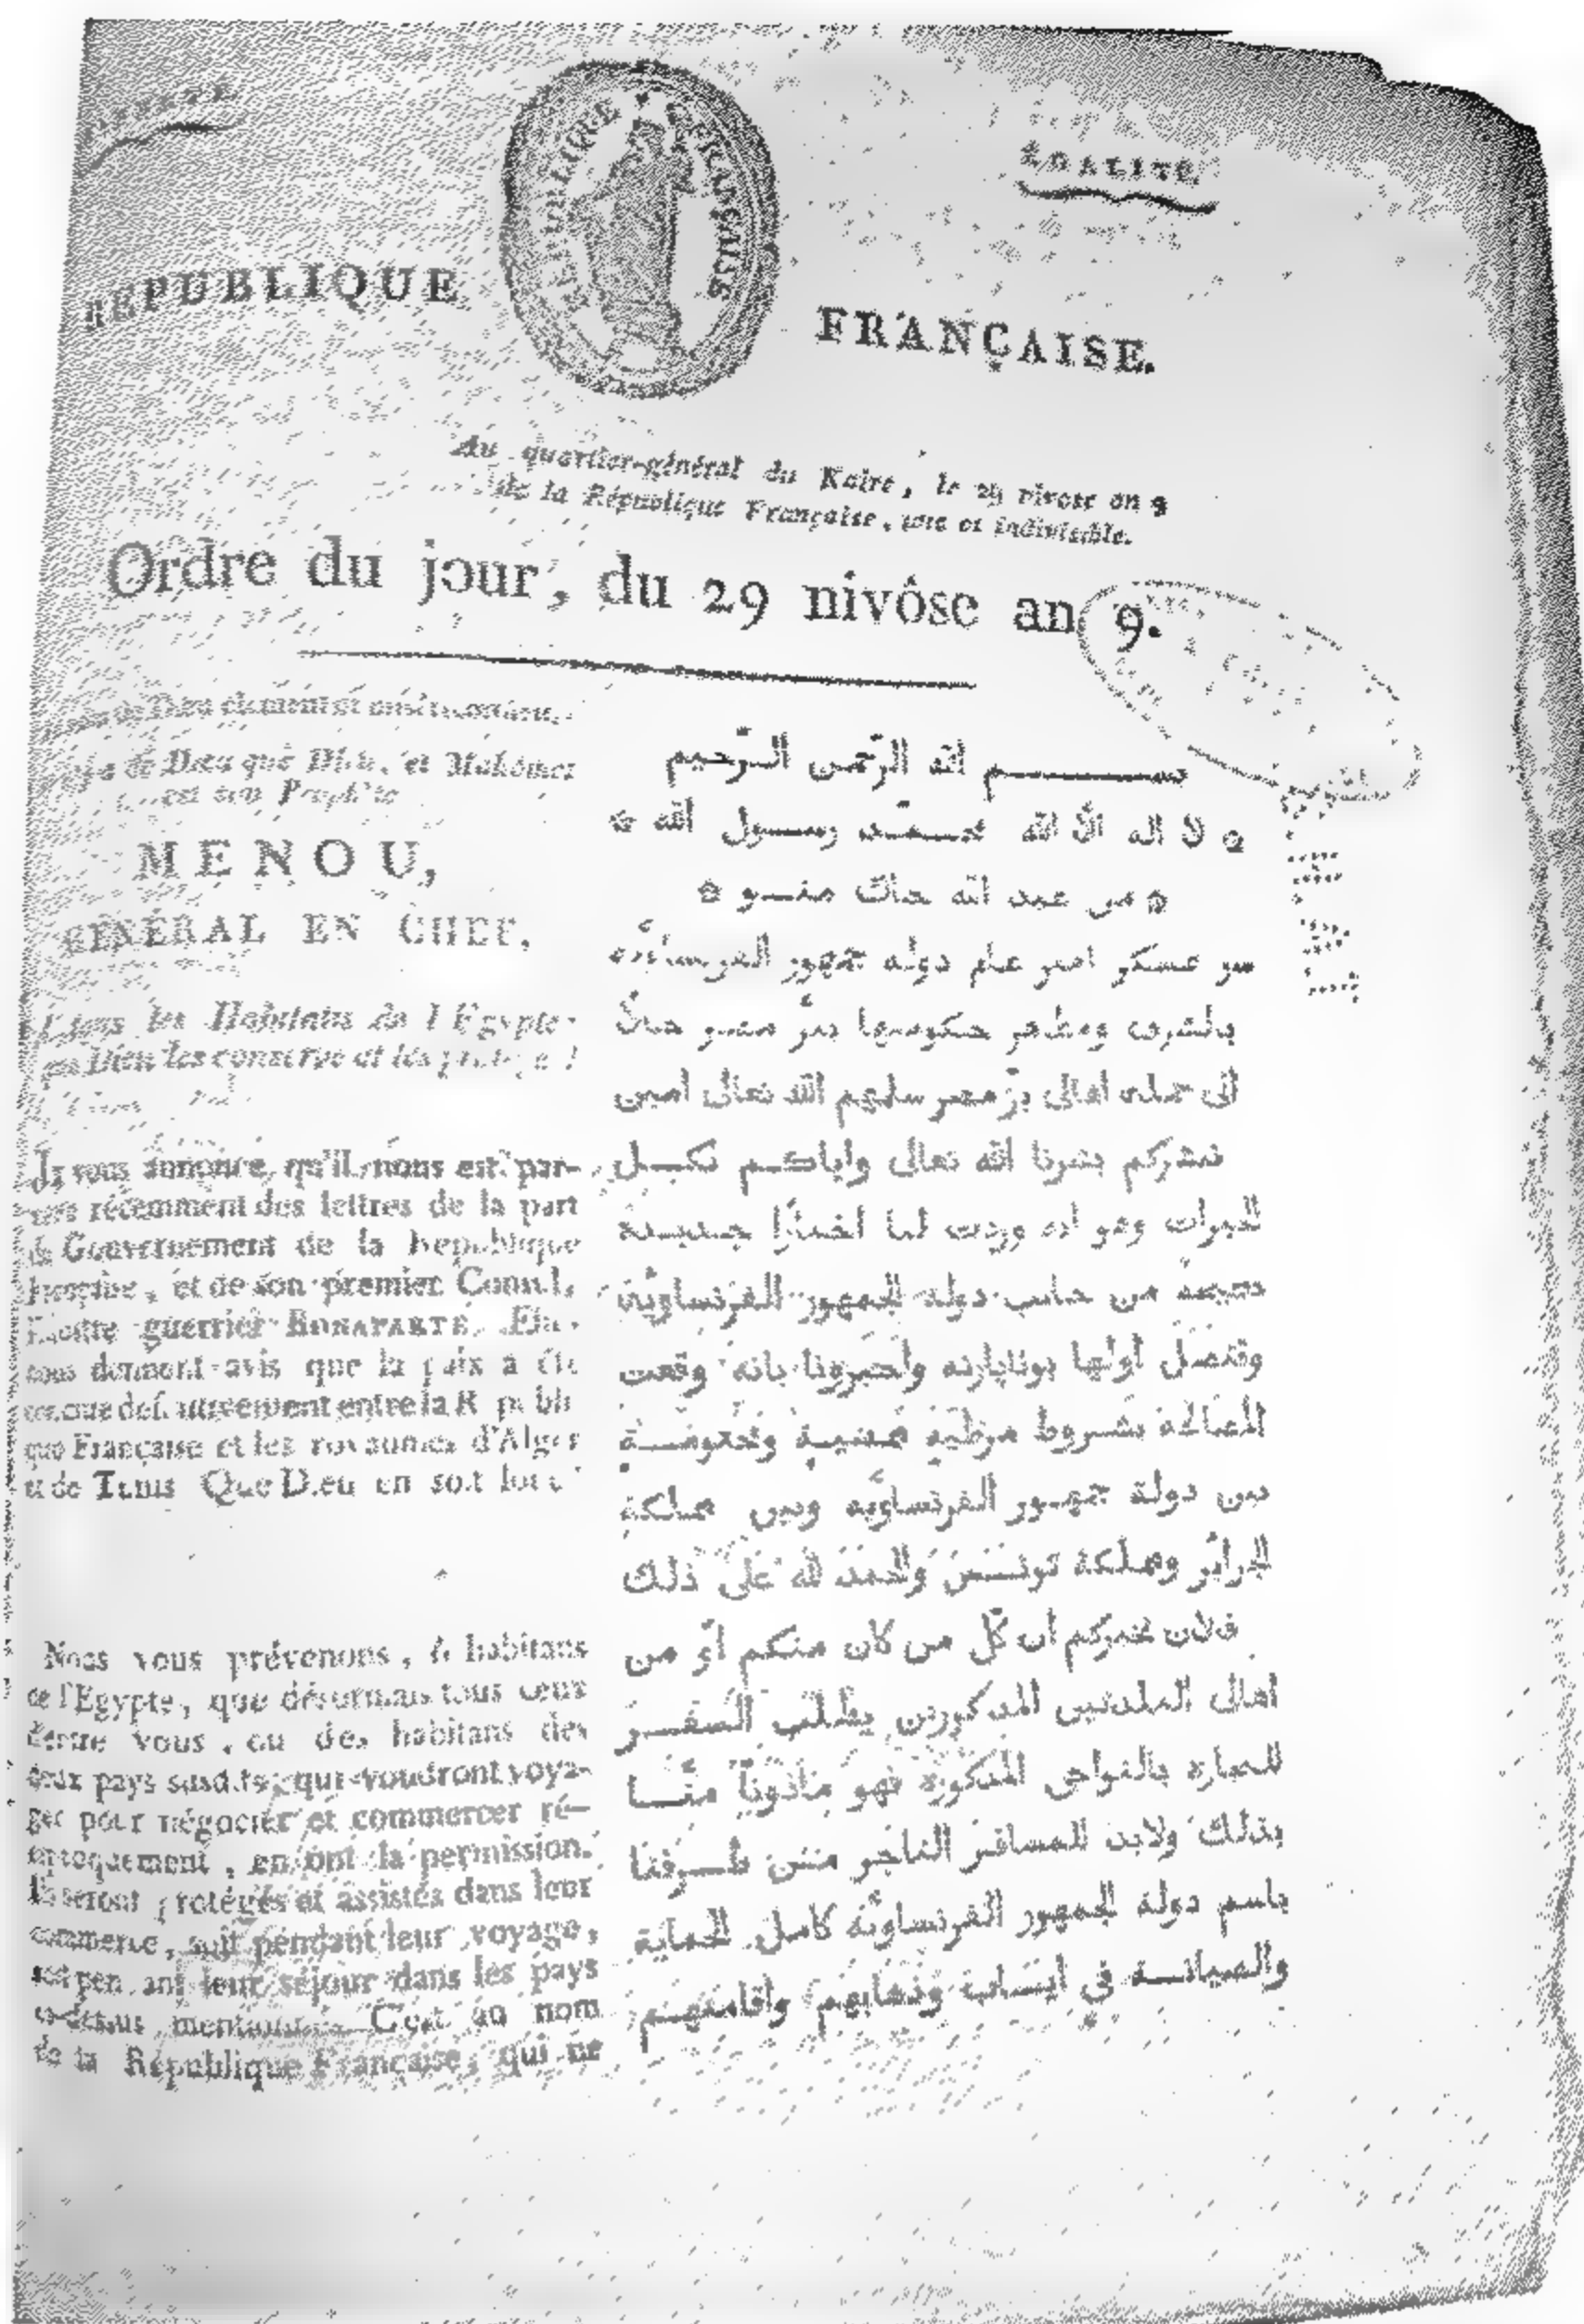 ÉGALITÉ
RÉPUBLIQUE FRANÇAISE
RÉPUBLIQUE FRANÇAISE.
Au quartier-général du Kaire, le 29 nivose an 9
de la République Française, une et indivisible.
Ordre du jour, du 29 nivôse an 9.
de Dieu clément et miséricordieux.
de Dieu que Dieu, et Mahomet
est son Prophète
MENOU,
GÉNÉRAL EN CHEF,
les Habitans de l'Egypte;
que Dieu les conserve et les protège !
Je vous annonce, qu'il nous est par-
récemment des lettres de la part
du Gouvernement de la République
Française, et de son premier Consul,
guerrier BONAPARTE. Elles
nous donnent avis que la paix a été
entre la Républi-
que Française et les royaumes d'Alger
et de Tunis Que Dieu en soit loué !
Nous vous prévenons, ô habitans
de l'Egypte, que désormais tous ceux
d'entre vous, ou des habitans des
deux pays susdits, qui voudront voya-
ger pour négocier et commercer ré-
ciproquement, en ont la permission.
Ils seront protégés et assistés dans leur
commerce, soit pendant leur voyage,
soit pendant leur séjour dans les pays
ci-dessus mentionnés. C'est au nom
de la République Française, qui ne
بســـــم الله الرّحمن الـرّحيم
لا اله الّا الله محـمّـد رسـول الله
من عبد الله جاك منـو
سر عسكر امير عام دولة جمهور الفرنساويّه
بالشرق ومظاهر حكومتها ببرّ مصر حالاً
الى جملة اهالى برّ مصر سلمهم الله تعالى امين
نبشركم بشرنا الله تعالى واياكـم بكـل
للخيرات وهو انه وردت لنا اخبارًا جـديـدة
صحيحة من جانب دولة الجمهور الفرنساويّة
وقنصل اولها بونابارته واخبرونا بانه وقعت
المصالحة بشـروط مرضيّة
بين دولة جمهـور الفرنساويّه وبين مملكة
الجزائر ومملكة تونـس والحمد لله على ذلك
فالان نخبركم ان كلّ من كان منكم أو من
اهالى المذكورين يطلب السفـر
للتجارة بالنواحى المذكورة فهو ماذوناً منّـا
بذلك ولابد للمسافر التاجر من طـرفنا
باسم دولة الجمهور الفرنساويّة كامل الحماية
والصيانـة فى وذهابهم واقامتهـم